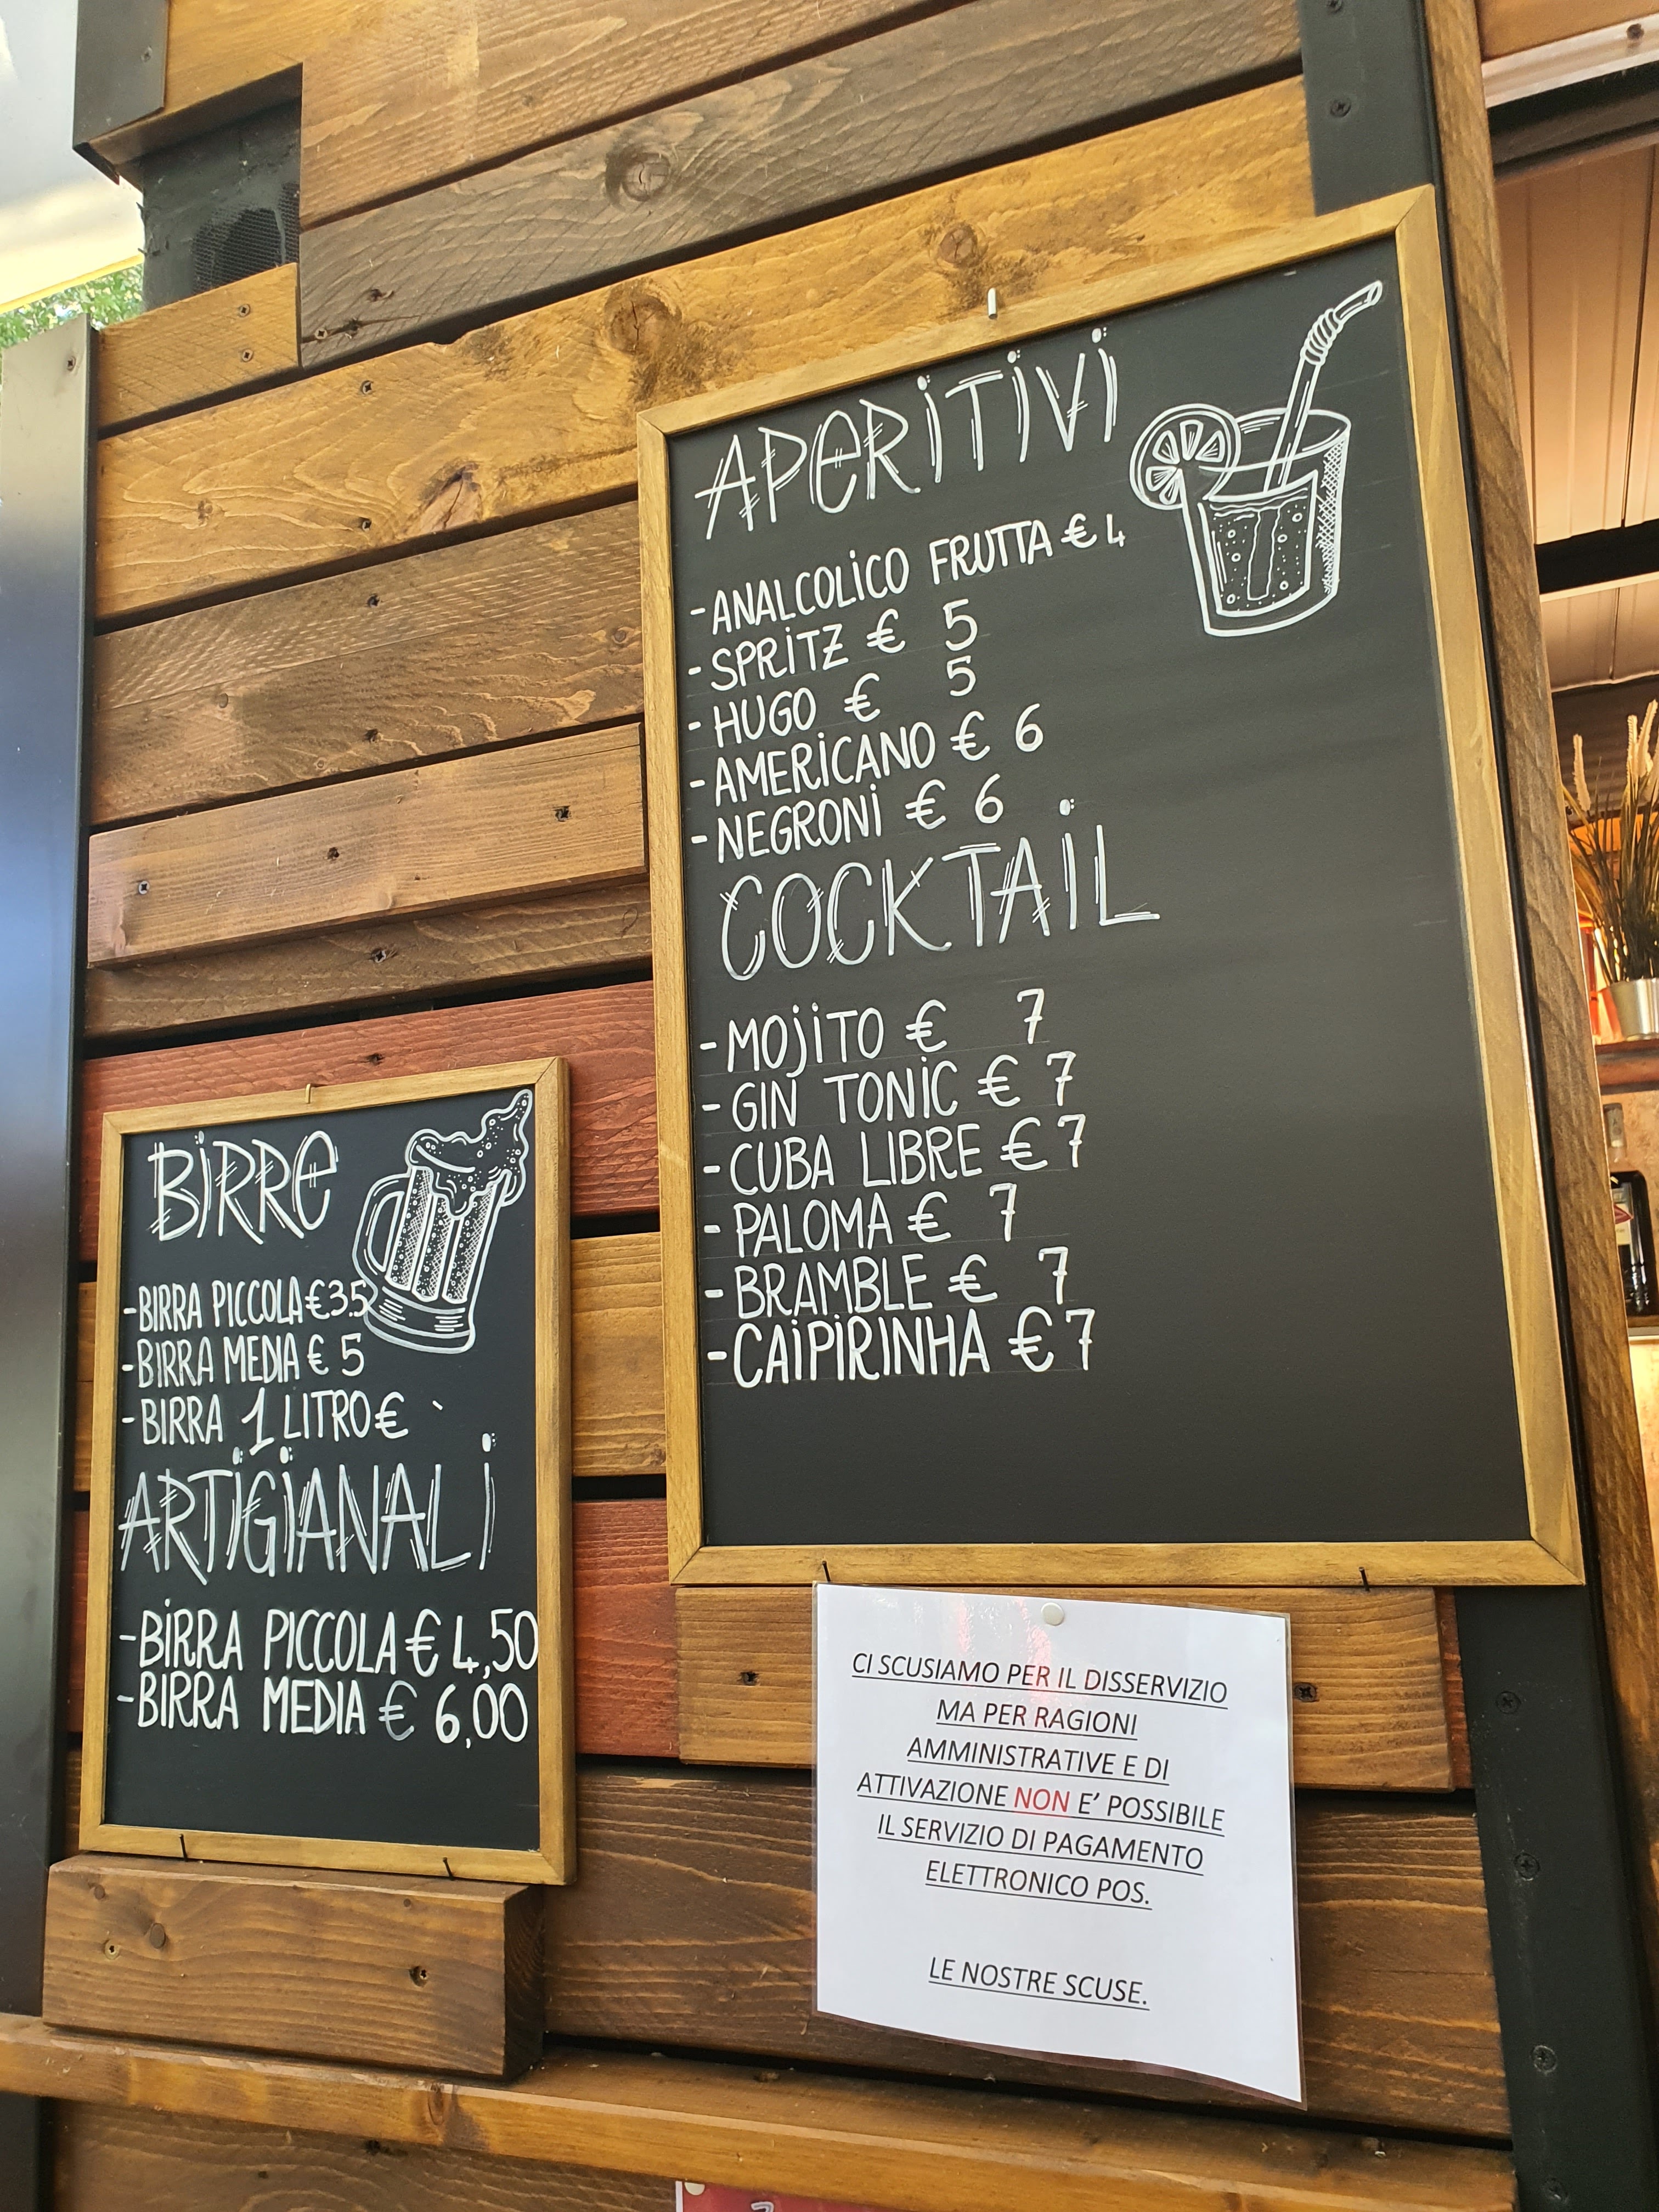 APERITIVI
-ANALCOLICO FRUTTA € 4
-SPRITZ € 5
-HUGO € 5
-AMERICANO € 6
-NEGRONI € 6
COCKTAIL
-MOJITO € 7
-GIN TONIC € 7
-CUBA LIBRE € 7
-PALOMA € 7
-BRAMBLE € 7
-CAIPIRINHA € 7
BIRRE
-BIRRA PICCOLA €3.5
-BIRRA MEDIA € 5
-BIRRA 1 LITRO €
ARTIGIANALI
-BIRRA PICCOLA € 4,50
-BIRRA MEDIA € 6,00
CI SCUSIAMO PER IL DISSERVIZIO
MA PER RAGIONI
AMMINISTRATIVE E DI
ATTIVAZIONE NON E' POSSIBILE
IL SERVIZIO DI PAGAMENTO
ELETTRONICO POS.
LE NOSTRE SCUSE.